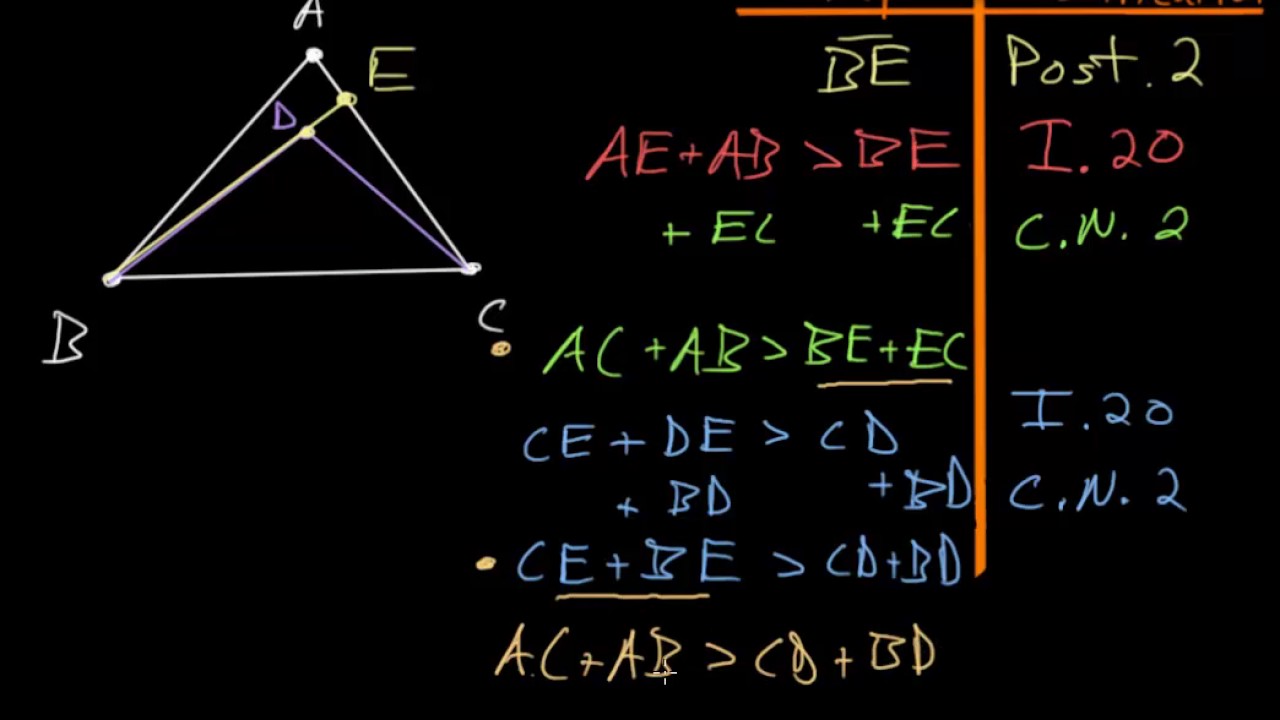 A
E
D
B
C
BE Post. 2
AE+AB > BE I. 20
+ EC +EC C.N. 2
AC + AB > BE+EC
CE + DE > CD I. 20
+ BD + BD C.N. 2
CE + BE > CD+BD
AC+AB > CD + BD